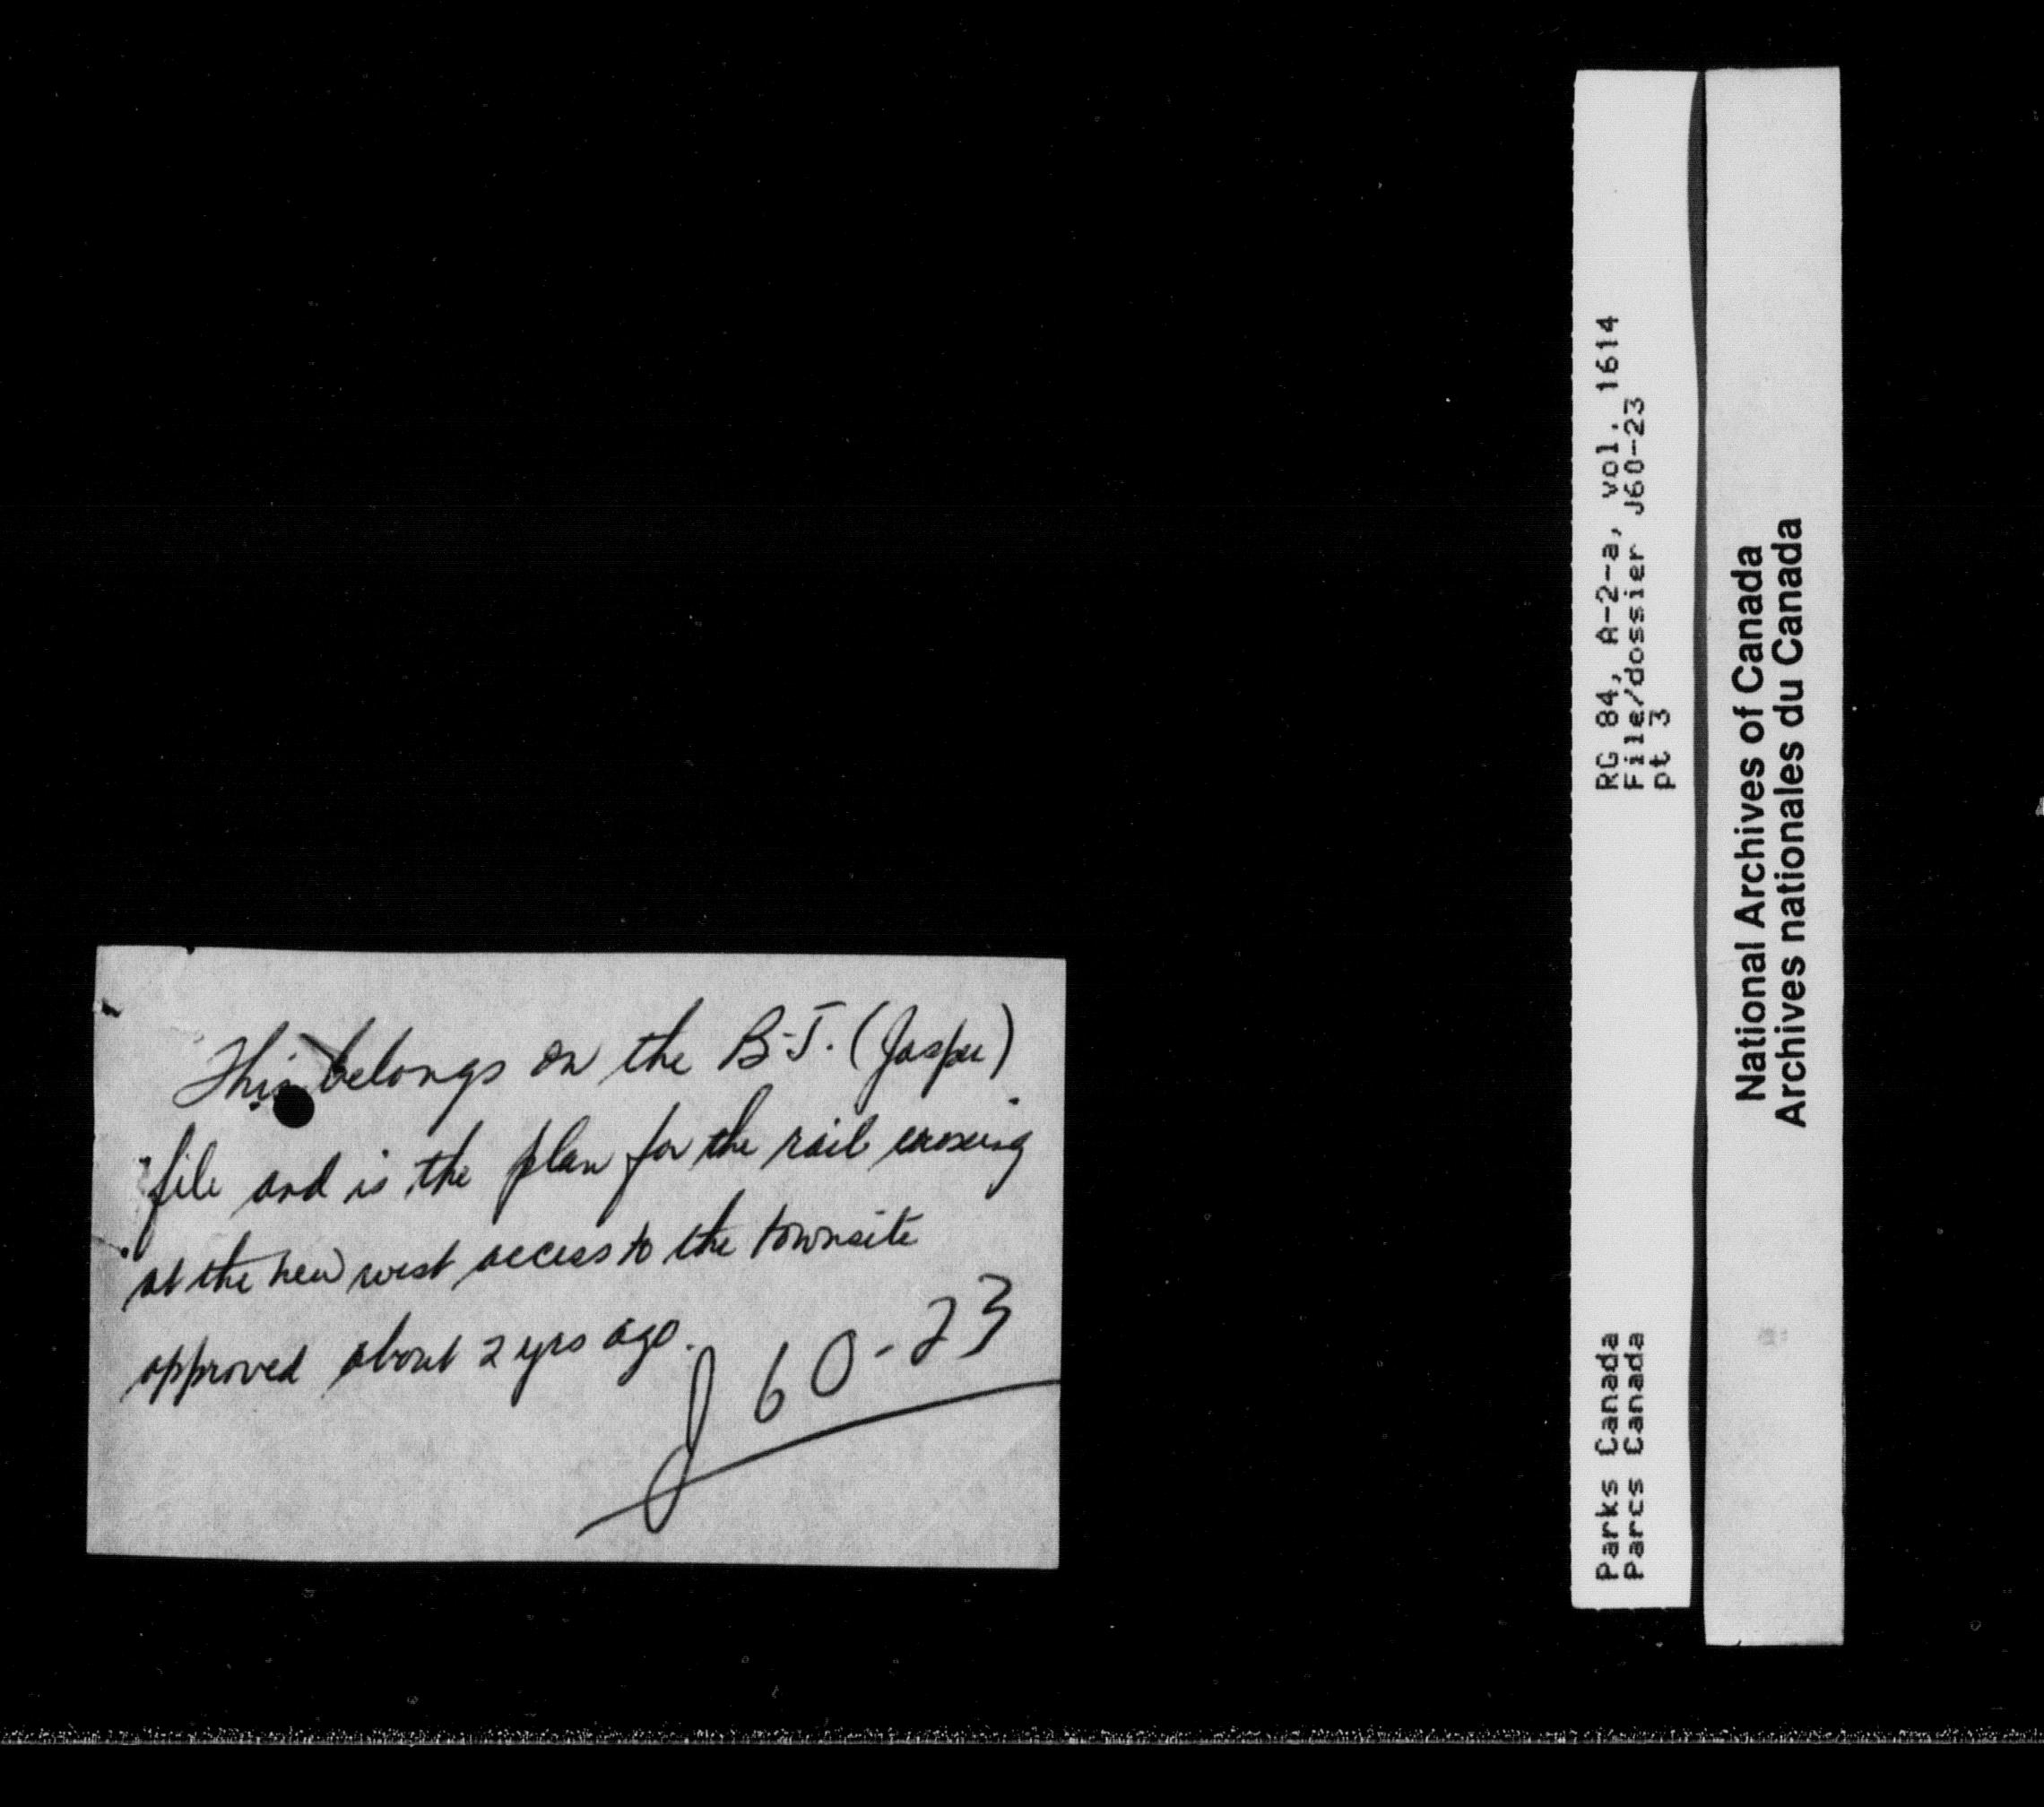 This belongs on the B-J. (Jasper)
file and is the plan for the rail crossing
at the new west access to the townsite
approved about 2 yrs ago.
J 60-23
RG 84, A-2-a, vol. 1614
File/dossier J60-23
pt 3
Parks Canada
Parcs Canada
National Archives of Canada
Archives nationales du Canada